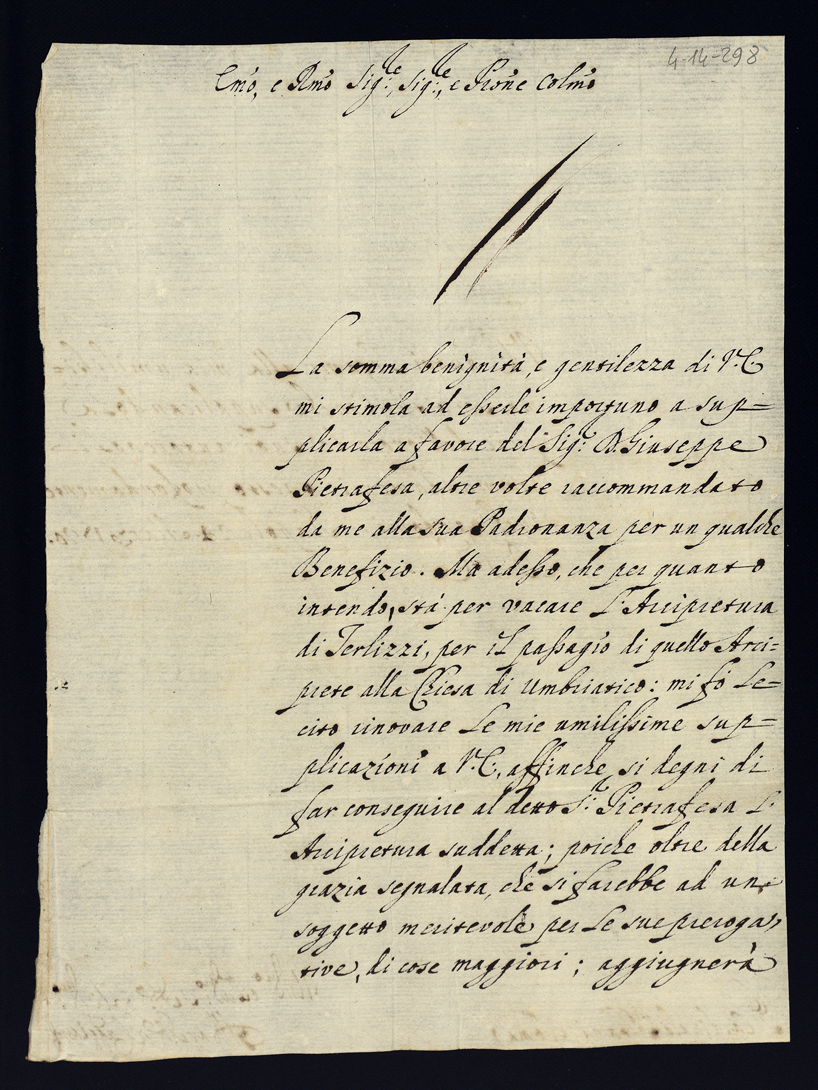 4-14-298
Emo, e Rmo Sig:re, Sig:re, e Prone Colmo
La somma benignità, e gentilezza di V.E.
mi stimola ad essere importuno a sup=
plicarla a favore del Sig:r D. Giuseppe
Pietrafesa, altre volte raccommandato
da me alla sua Padronanza per un qualche
Benefizio. Ma adesso, che per quanto
intendo, stà per vacare l'Arcipretura
di Terlizzi, per il passagio di quello Arci=
prete alla Chiesa di Umbriatico: mi fò le=
cito rinovare le mie umilissime sup=
plicazioni a V.E., affinche si degni di
far conseguire al detto S.r Pietrafesa l'
Arcipretura suddetta; poiche oltre della
grazia segnalata, che si farebbe ad un
soggetto meritevole per le sue preroga=
tive, di cose maggiori; aggiugnerà